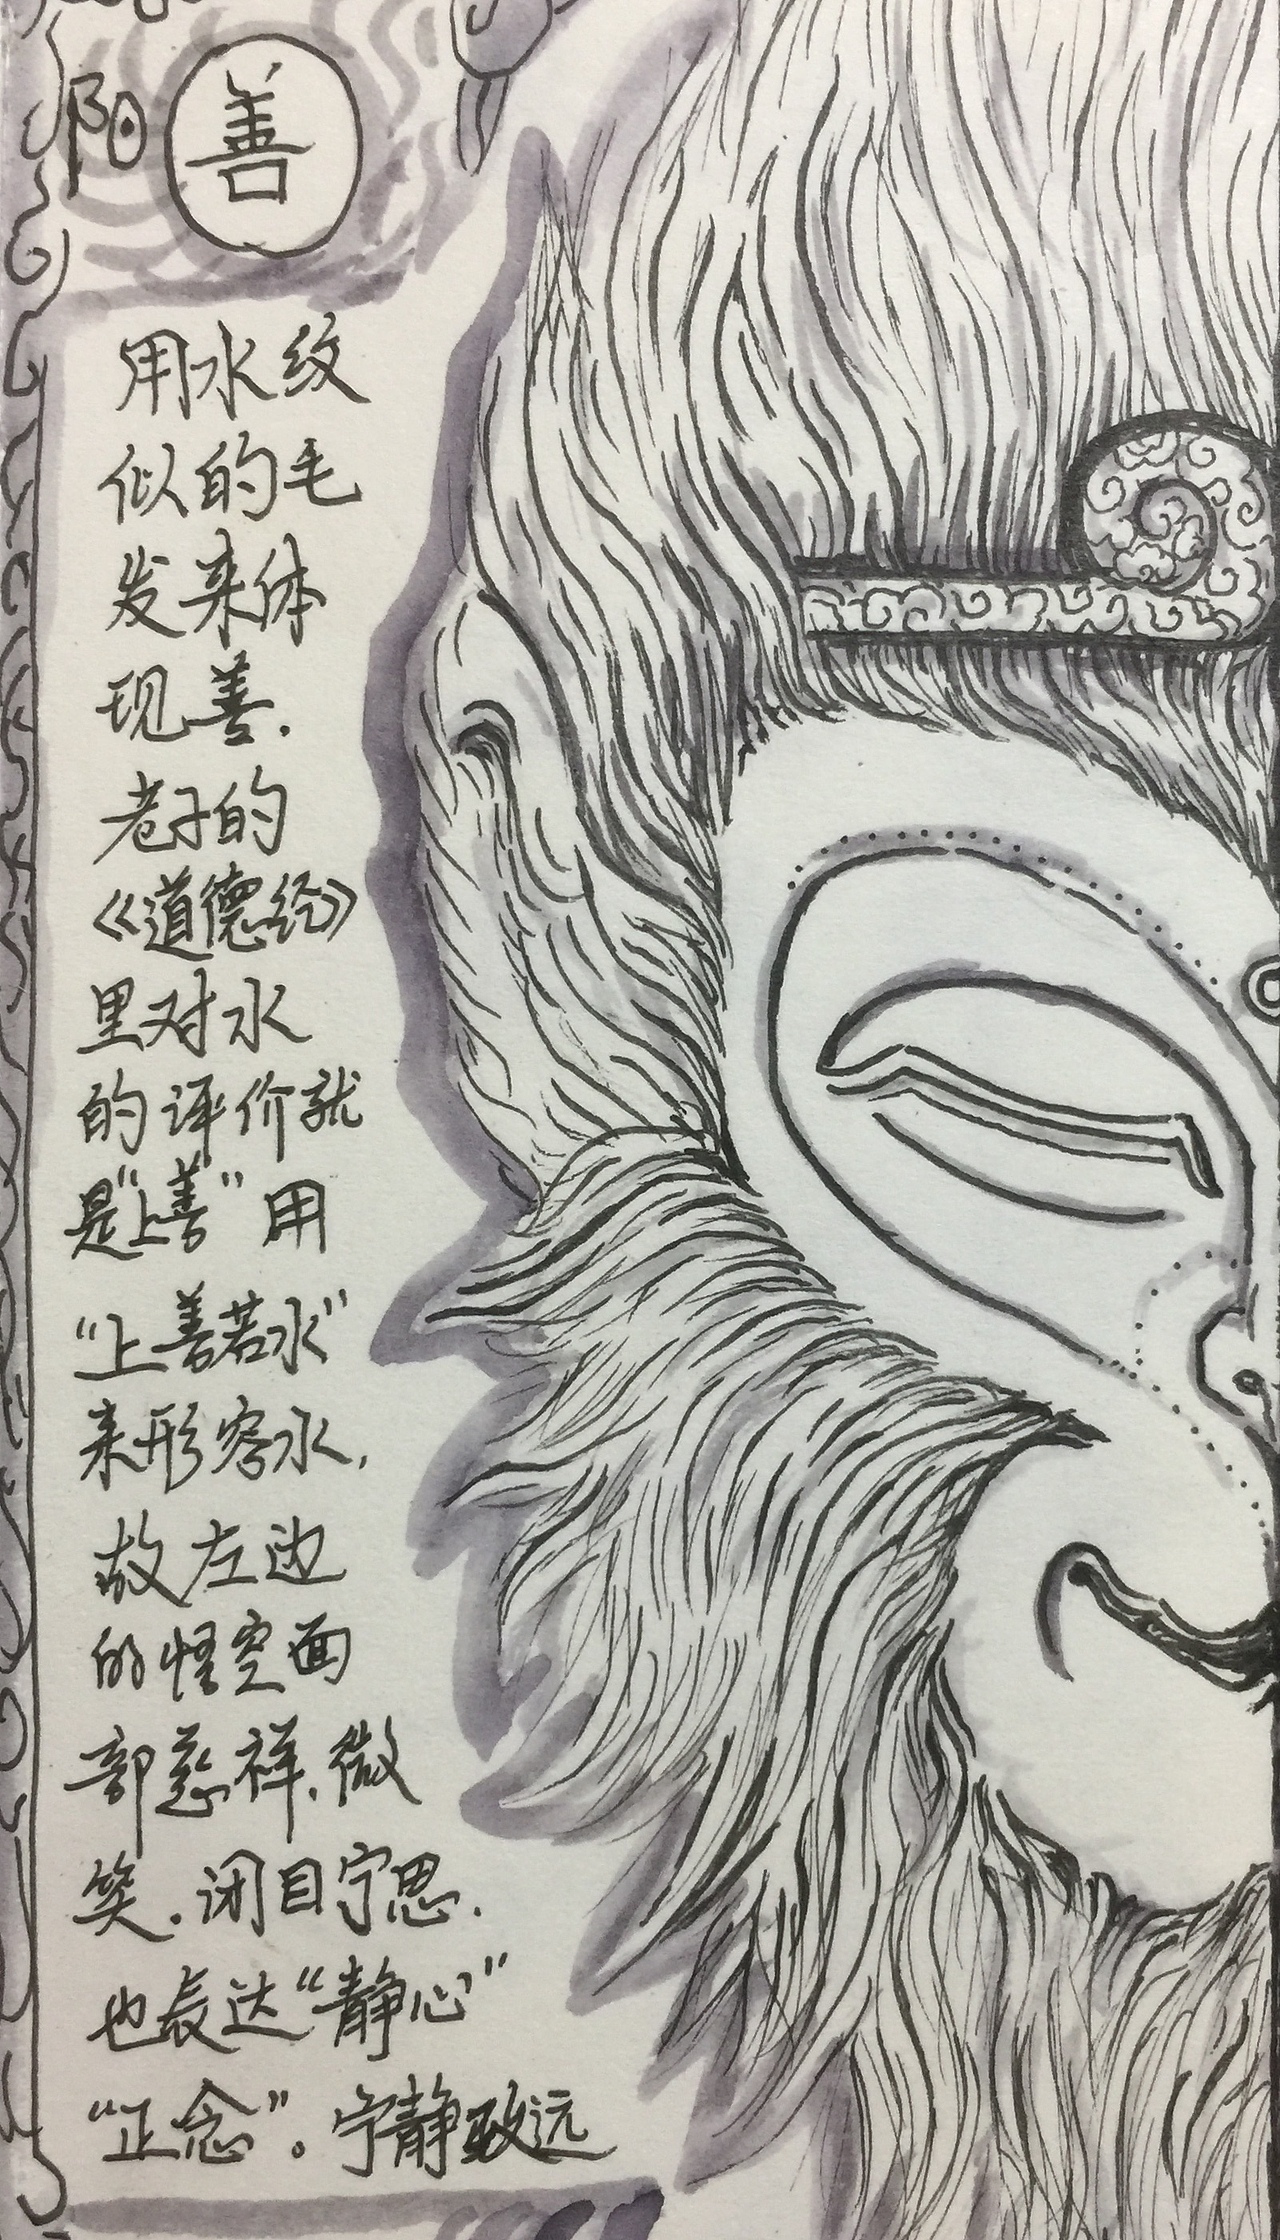 阳 善
用水纹
似的毛
发来体
现善.
老子的
《道德经》
里对水
的评价就
是“上善”用
“上善若水”
来形容水,
故左边
的悟空面
部慈祥.微
笑.闭目宁思.
也表达“静心”
“正念”。宁静致远